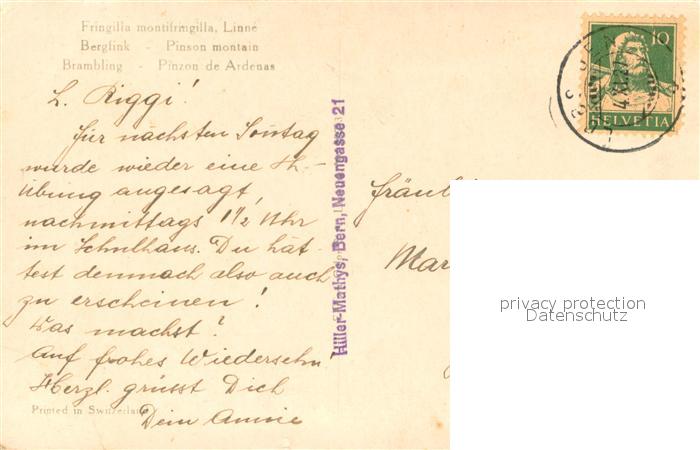 Fringilla montifringilla, Linné
Bergfink - Pinson montain
Brambling - Pinzon de Ardenas
L. Riggi!
Für nächsten Sonntag
wurde wieder eine Th-
übung angesagt,
nachmittags 1 1/2 Uhr
im Schulhaus. Du hät-
test demnach also auch
zu erscheinen!
Was machst?
Auf frohes Wiedersehn
Herzl. grüsst Dich
Dein Annie
Printed in Switzerland
Hiller-Mathys, Bern, Neuengasse 21
10
HELVETIA
Fräul
Mar
privacy protection
Datenschutz